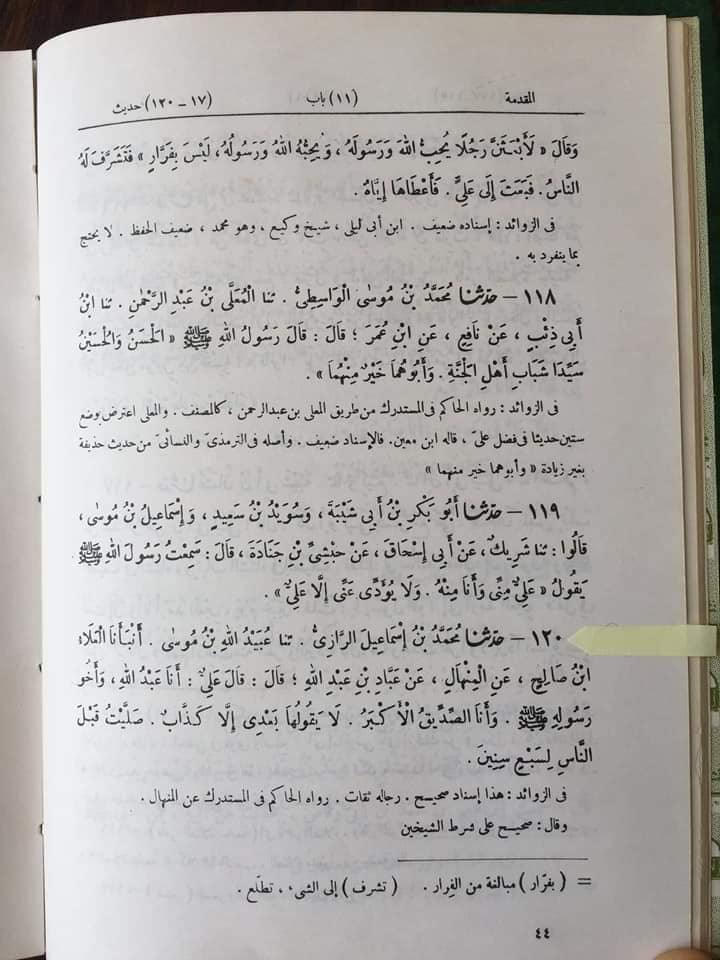 المقدمة (١١) باب (١٧ – ١٢٠) حديث
وَقَالَ « لَأَبْعَثَنَّ رَجُلًا يُحِبُّ اللهَ وَرَسُولَهُ ، وَيُحِبُّهُ اللهُ وَرَسُولُهُ، لَيْسَ بِفَرَّارٍ » فَتَشَرَّفَ لَهُ
النَّاسُ . فَبَعَثَ إِلَى عَلِيٍّ. فَأَعْطَاهَا إِيَّاهُ .
فى الزوائد : إسناده ضعيف . ابن أبى ليلى ، شيخ وكيع ، وهو محمد ، ضعيف الحفظ . لا يحتج
بما ينفرد به .
١١٨ – حَدّثنا مُحَمَّدُ بْنُ مُوسَى الْوَاسِطِىُّ . ثنا الْمُعَلَّى بْنُ عَبْدِ الرَّحْمٰنِ . ثنا ابْنُ
أَبِى ذِئْبٍ ، عَنْ نَافِعٍ ، عَنِ ابْنِ عُمَرَ ؛ قَالَ : قَالَ رَسُولُ اللهِ ﷺ « الْحَسَنُ وَالْحُسَيْنُ
سَيِّدَا شَبَابِ أَهْلِ الْجَنَّةِ . وَأَبُوهُمَا خَيْرٌ مِنْهُمَا » .
فى الزوائد : رواه الحاكم فى المستدرك من طريق المعلى بن عبد الرحمن ، كالمصنف . والمعلى اعترض بوضع
ستين حديثا فى فضل علىّ ، قاله ابن معين. فالإسناد ضعيف . وأصله فى الترمذى والنسائىّ من حديث حذيفة
بغير زيادة « وأبوهما خير منهما »
١١٩ – حَدّثنا أَبُو بَكْرِ بْنُ أَبِى شَيْبَةَ ، وَسُوَيْدُ بْنُ سَعِيدٍ ، وَإِسْمَاعِيلُ بْنُ مُوسَى ،
قَالُوا : ثنا شَرِيكٌ ، عَنْ أَبِى إِسْحَاقَ ، عَنْ حُبْشِىِّ بْنِ جُنَادَةَ ، قَالَ : سَمِعْتُ رَسُولَ اللهِ ﷺ
يَقُولُ « عَلِىٌّ مِنِّى وَأَنَا مِنْهُ . وَلَا يُؤَدِّى عَنِّى إِلَّا عَلِىٌّ » .
١٢٠ – حَدّثنا مُحَمَّدُ بْنُ إِسْمَاعِيلَ الرَّازِىُّ . ثنا عُبَيْدُ اللهِ بْنُ مُوسَى . أَنْبَأَنَا الْعَلَاءُ
ابْنُ صَالِحٍ ، عَنِ الْمِنْهَالِ ، عَنْ عَبَّادِ بْنِ عَبْدِ اللهِ ؛ قَالَ : قَالَ عَلِىٌّ : أَنَا عَبْدُ اللهِ ، وَأَخُو
رَسُولِهِ ﷺ . وَأَنَا الصِّدِّيقُ الْأَكْبَرُ . لَا يَقُولُهَا بَعْدِى إِلَّا كَذَّابٌ . صَلَّيْتُ قَبْلَ
النَّاسِ لِسَبْعِ سِنِينَ .
فى الزوائد : هذا إسناد صحيح . رجاله ثقات . رواه الحاكم فى المستدرك عن المنهال .
وقال : صحيح على شرط الشيخين
= ( بفرّار ) مبالغة من الفِرار . ( تشرف ) إلى الشىء ، تطلّع .
٤٤